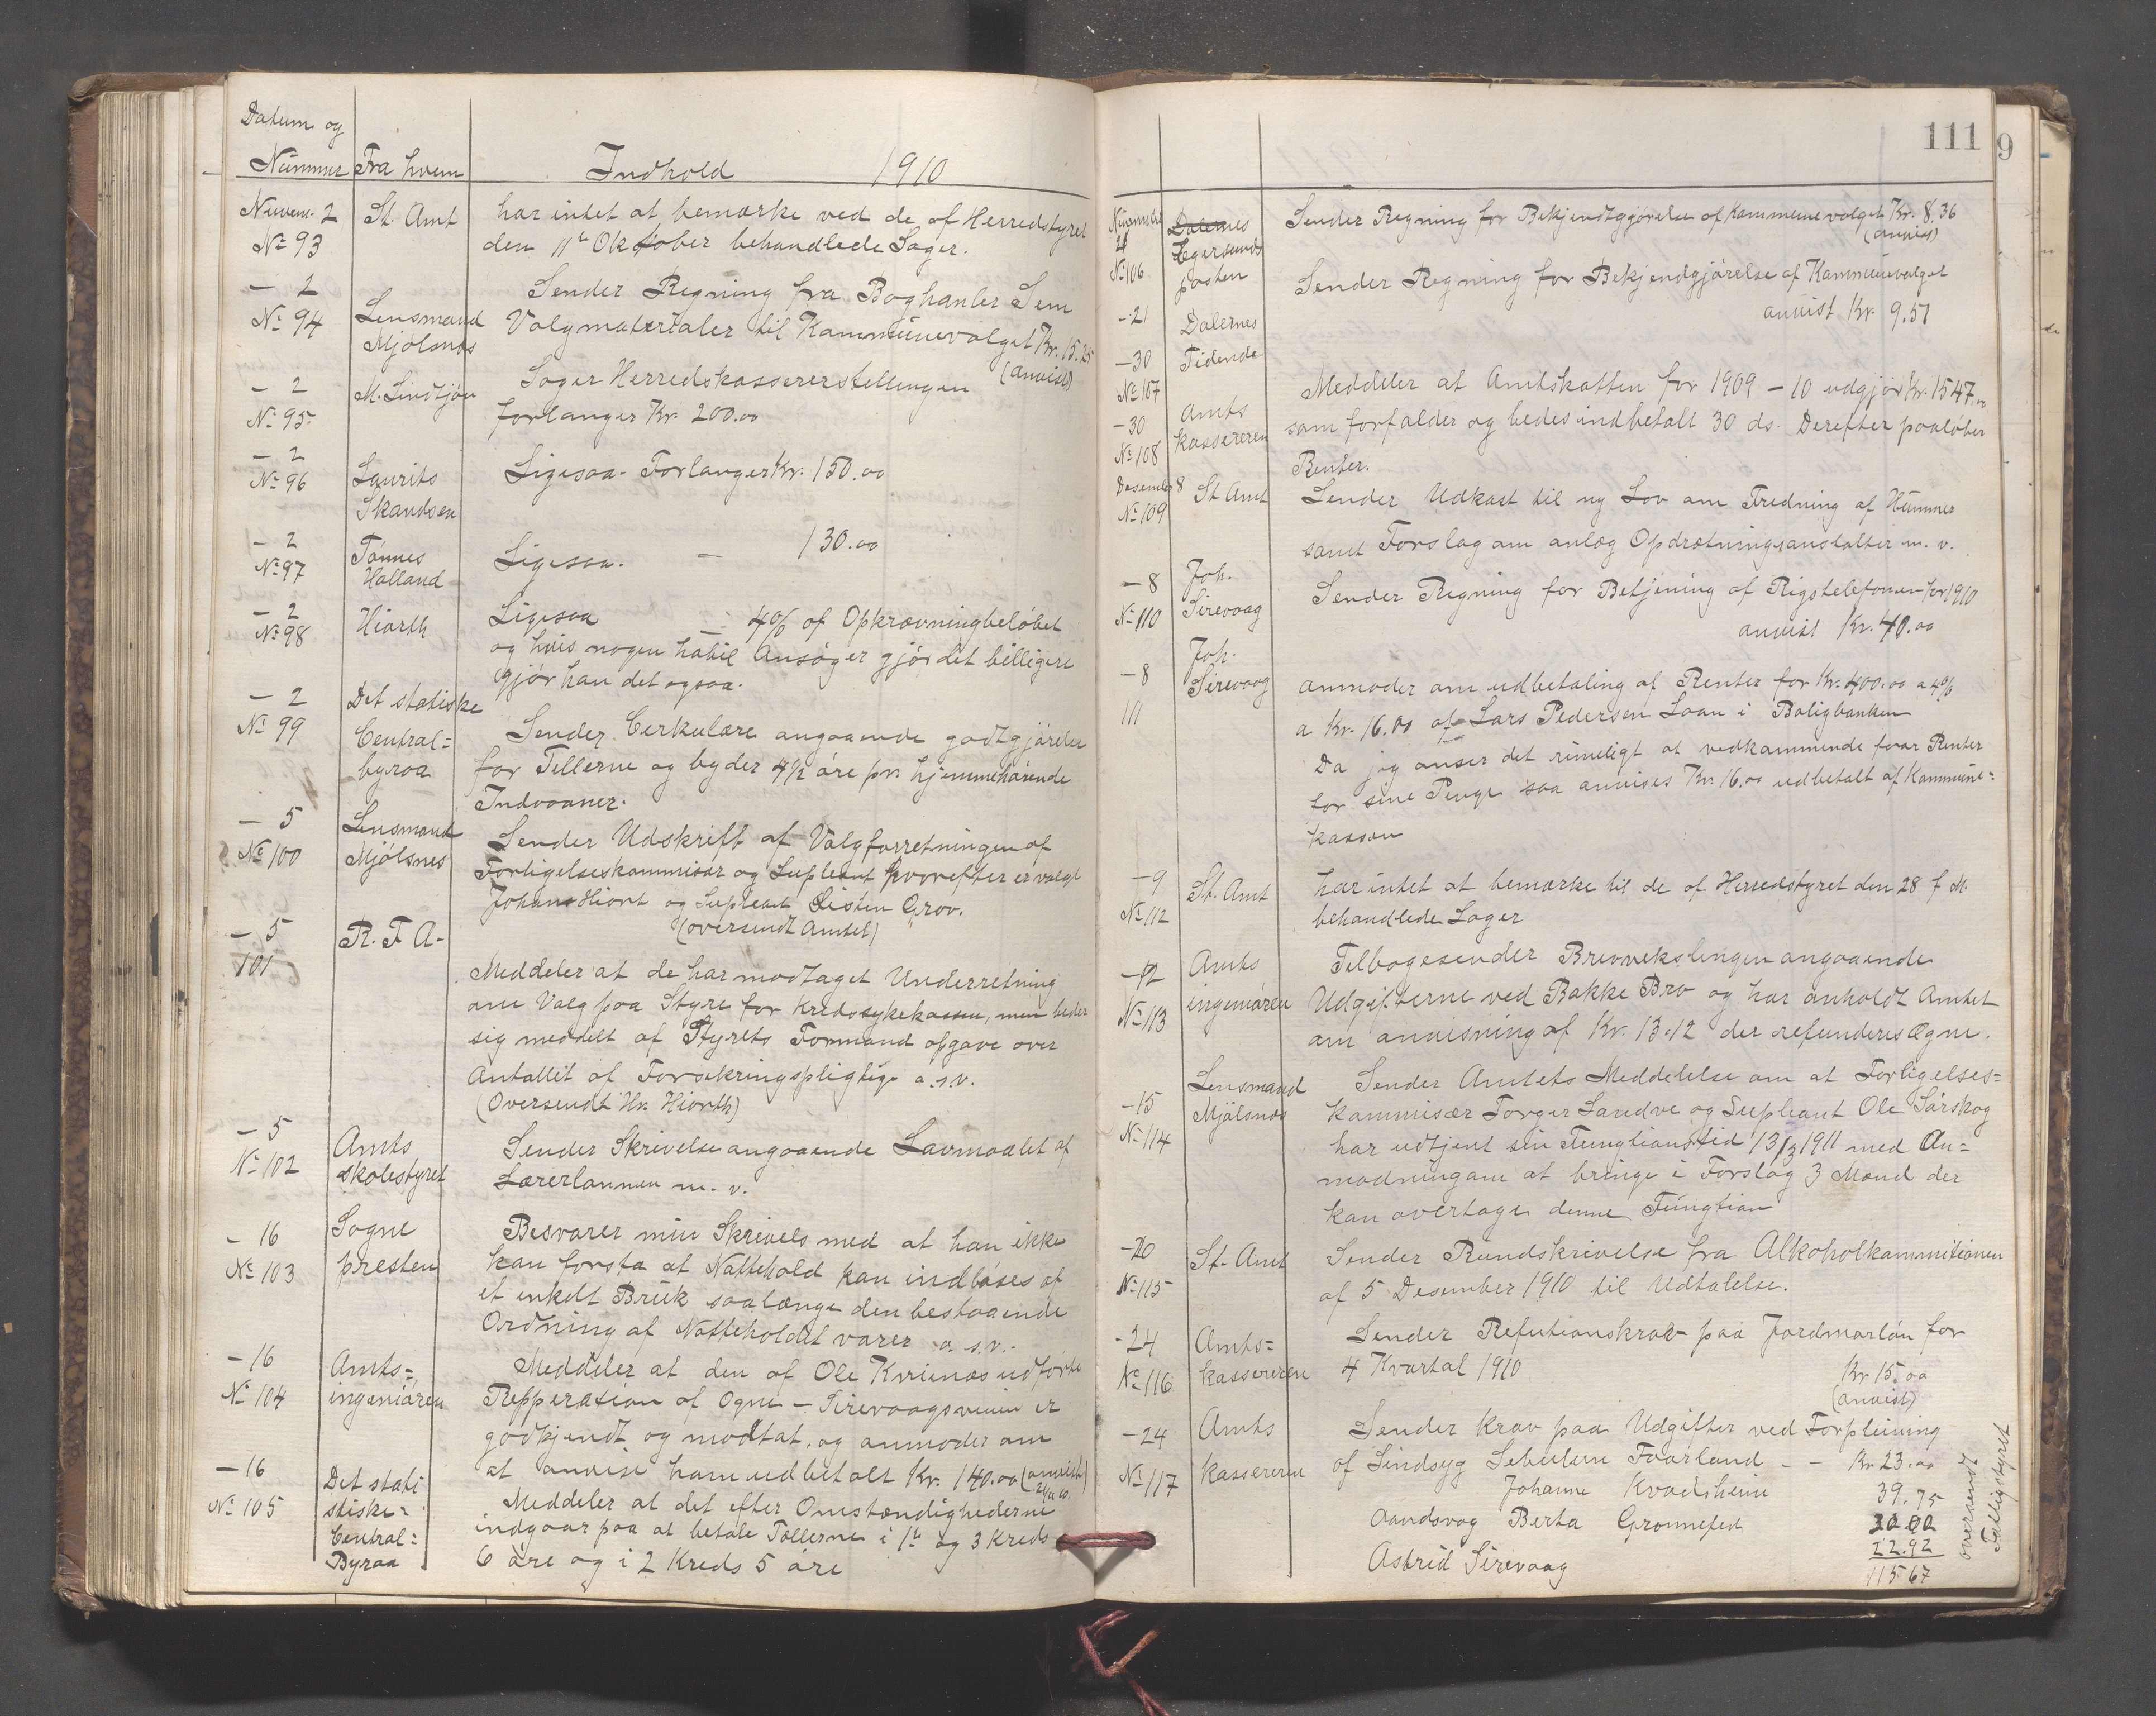 Datum og
Nummer Fra hvem Indhold 1910
Novem. 2 St. Amt har intet at bemærke ved de af Herredstyret
No 93 den 11te Oktober behandlede Sager.
- 2 Sender Regning fra Boghanler Sem
No 94 Lensmand Valgmaterialer til Kommunevalget Kr. 15.25
Mjölsnes (anvist)
- 2 M. Lindtjön Søger Herredskassererstellingen
No 95 forlanger Kr. 200.00
- 2
No 96 Laurits Ligesaa. Forlanger Kr. 150.00
Skandsen
- 2 Tönnes Ligesaa. - 130.00
No 97 Holland
- 2 Hiorth Ligesaa - 4% af Opkrævningbelöbet
No 98 og hvis nogen habil Ansöger gjör det billigere
gjör han det ogsaa.
- 2 Det statiske
No 99 Central= Sender Cerkulære angaaende godtgjörelse
byraa for Tellerne og byder 4½ öre pr. hjemmehörende
Indvaaner.
- 5 Lensmand Sender Udskrift af Valgforretningen af
No 100 Mjölsnes Forligelseskommisær og Supleant hvorefter er valgt
Johan Hiort og Supleant Eisten Grov.
(oversendt Amtet)
- 5 R. F A-
101 Meddeler at de har modtaget Underretning
om Valg paa Styre for Kredssykekassen, men beder
sig meddelt af Styrets Formand opgave over
Antallet af Forsikringspligtige o.s.v.
(Oversendt Hr. Hiorth)
- 5 Amts Sender Skrivelse angaaende Lavmaalet af
No 102 skolestyret Lærerlønnen m. v.
- 16 Sogne Besvarer min Skrivels med at han ikke
No 103 presten kan forsta at Nattehold kan indlöses af
et enkelt Brük saalænge den bestaaende
Ordning af Natteholdet varer o. s.v.
- 16 Amts= Meddeler at den af Ole Kvienæs udförte
No 104 ingeniören Repperation af Ogne - Sirevaagsveien er
godkjendt og modtat, og anmoder om
at anvise ham udbetalt Kr. 140.00 (anvist)
- 16 Det stati Meddeler at det efter Omstændighederne
No 105 stiske= indgaar paa at betale Tællerne i 1te og 3 Kreds
Central= 6 öre og i 2 Kreds 5 öre
Byraa
111 9
November Dalernes Sender Regning for Bekjendtgjörelse af Kommunevalget Kr. 8.36
Egersunds (anvist)
No 106 posten Sender Regning for Bekjendgjörelse af Kommunevalget
- 21 Dalernes anvist Kr. 9.57
- 30 Tidende
No 107 Meddeler at Amtskatten for 1909 - 10 udgjör Kr. 1547.00
- 30 Amts som forfalder og bedes indbetalt 30 ds. Derefter paalöber
No 108 kassereren Renter.
Desember 8 St Amt Sender Udkast til ny Lov om Fredning af Hummer
No 109 samt Forslag om anlæg Opdrætningsanstalter m. v.
- 8 Joh. Sender Regning for Betjening af Rigstelefonen for 1910
No 110 Sirevaag anvist Kr. 40.00
- 8 Joh.
111 Sirevaag anmoder om udbetaling af Renter for Kr. 400.00 a 4%
a Kr. 16.00 af Lars Pedersen Loan i Boligbanken
Da jeg anser det rimeligt at vedkommende faar Renter
for sine Penge saa anvises Kr. 16.00 udbetalt af Kommune=
kassen
- 9 St. Amt har intet at bemærke til de af Herredstyret den 28 f. M.
No 112 behandlede Sager
- 12 Amts Tilbagesender Brevvekslingen angaaende
No 113 ingeniören Udgifterne ved Bakke Bro og har anholdt Amtet
om anvisning af Kr. 13.12 der refunderes Ogne.
- 15 Lensmand Sender Amtets Meddelelse om at Forligelses=
No 114 Mjölsnes kommisær Torger Sandve og Supleant Ole Sörskog
har udtjent sin Fungtionstid 13/3 1911 med An=
modning om at bringe i Forslag 3 Mænd der
kan overtage denne Fungtion
- 20 St. Amt Sender Rundskrivelse fra Alkoholkommitionen
No 115 af 5 Desember 1910 til Udtalelse.
- 24 Amts= Sender Refutionskrav paa Jordmorlön for
No 116 kassereren 4 Kvartal 1910 Kr 15.00
(anvist)
- 24 Amts Sender Krav paa Udgifter ved Forpleining
No 117 kassereren af Sindsyg Faarland - - Kr 23.00
Johanne Kvadsheim 39.75
Aandsvag Berta Gronnefed 30.00
Astrid Sirevaag 22.92
115 67
oversendt
Fattigstyret